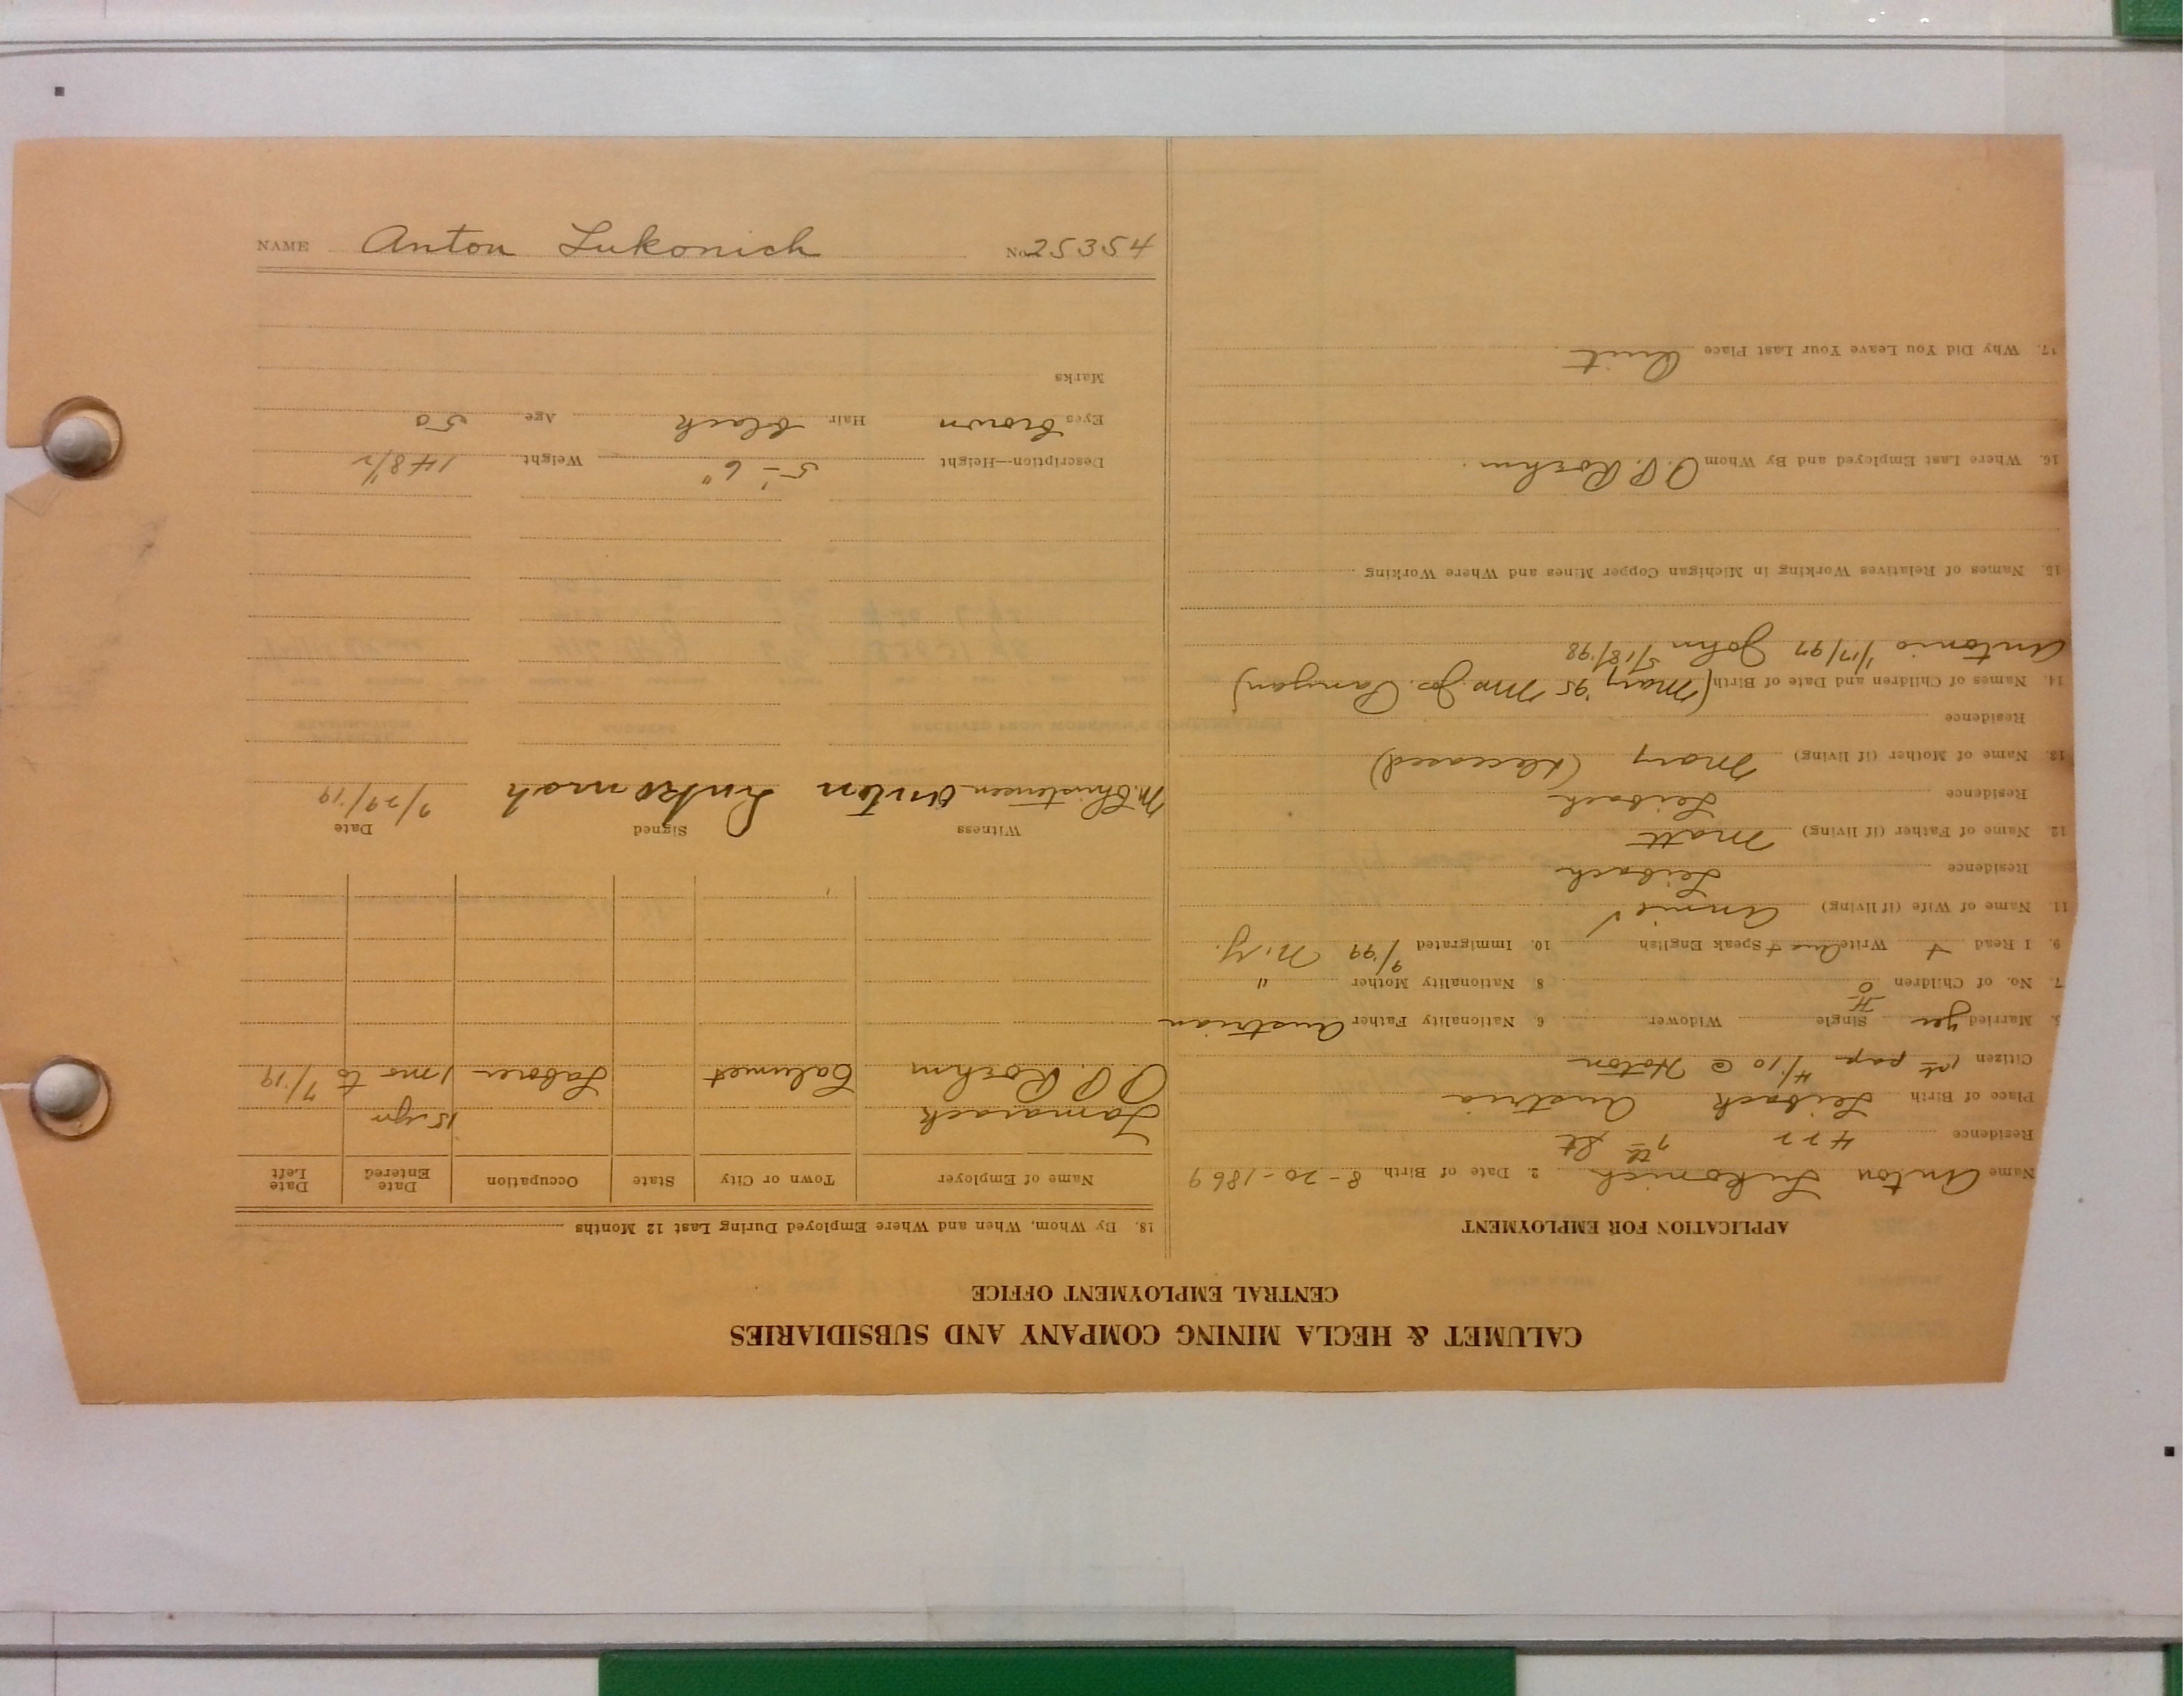 CALUMET & HECLA MINING COMPANY AND SUBSIDIARIES
CENTRAL EMPLOYMENT OFFICE
APPLICATION FOR EMPLOYMENT
Name Anton Lukonich 2. Date of Birth 8-20-1869
Residence 422 7th St
Place of Birth Leibach Austria
Citizen 1st pap 4/10 @ Hoton
5. Married yes Single Widower 6. Nationality Father Austrian
7. No. of Children 8. Nationality Mother "
9. I Read + Write Speak English 10. Immigrated 9/'99 N.Y.
11. Name of Wife (if living) Annie
Residence Leibach
12. Name of Father (if living) Matt
Residence Leibach
13. Name of Mother (if living) Mary (deceased)
Residence
14. Names of Children and Date of Birth (Mary '95 Mrs. Jos.
Antonio 1/17/97 John 5/18/'98
15. Names of Relatives Working in Michigan Copper Mines and Where Working
16. Where Last Employed and By Whom P. Roehm.
17. Why Did You Leave Your Last Place Quit
18. By Whom, When and Where Employed During Last 12 Months
Name of Employer Town or City State Occupation Date Entered Date Left
Tamarack 15 yrs
P. Roehm Calumet Laborer 1 mo to 7/'19
Witness Signed Date
M. Christensen Anton Lukonich 7/29/'19
Description—Height 5'-6" Weight 148½
Eyes brown Hair black Age 50
Marks
NAME Anton Lukonich No. 25354